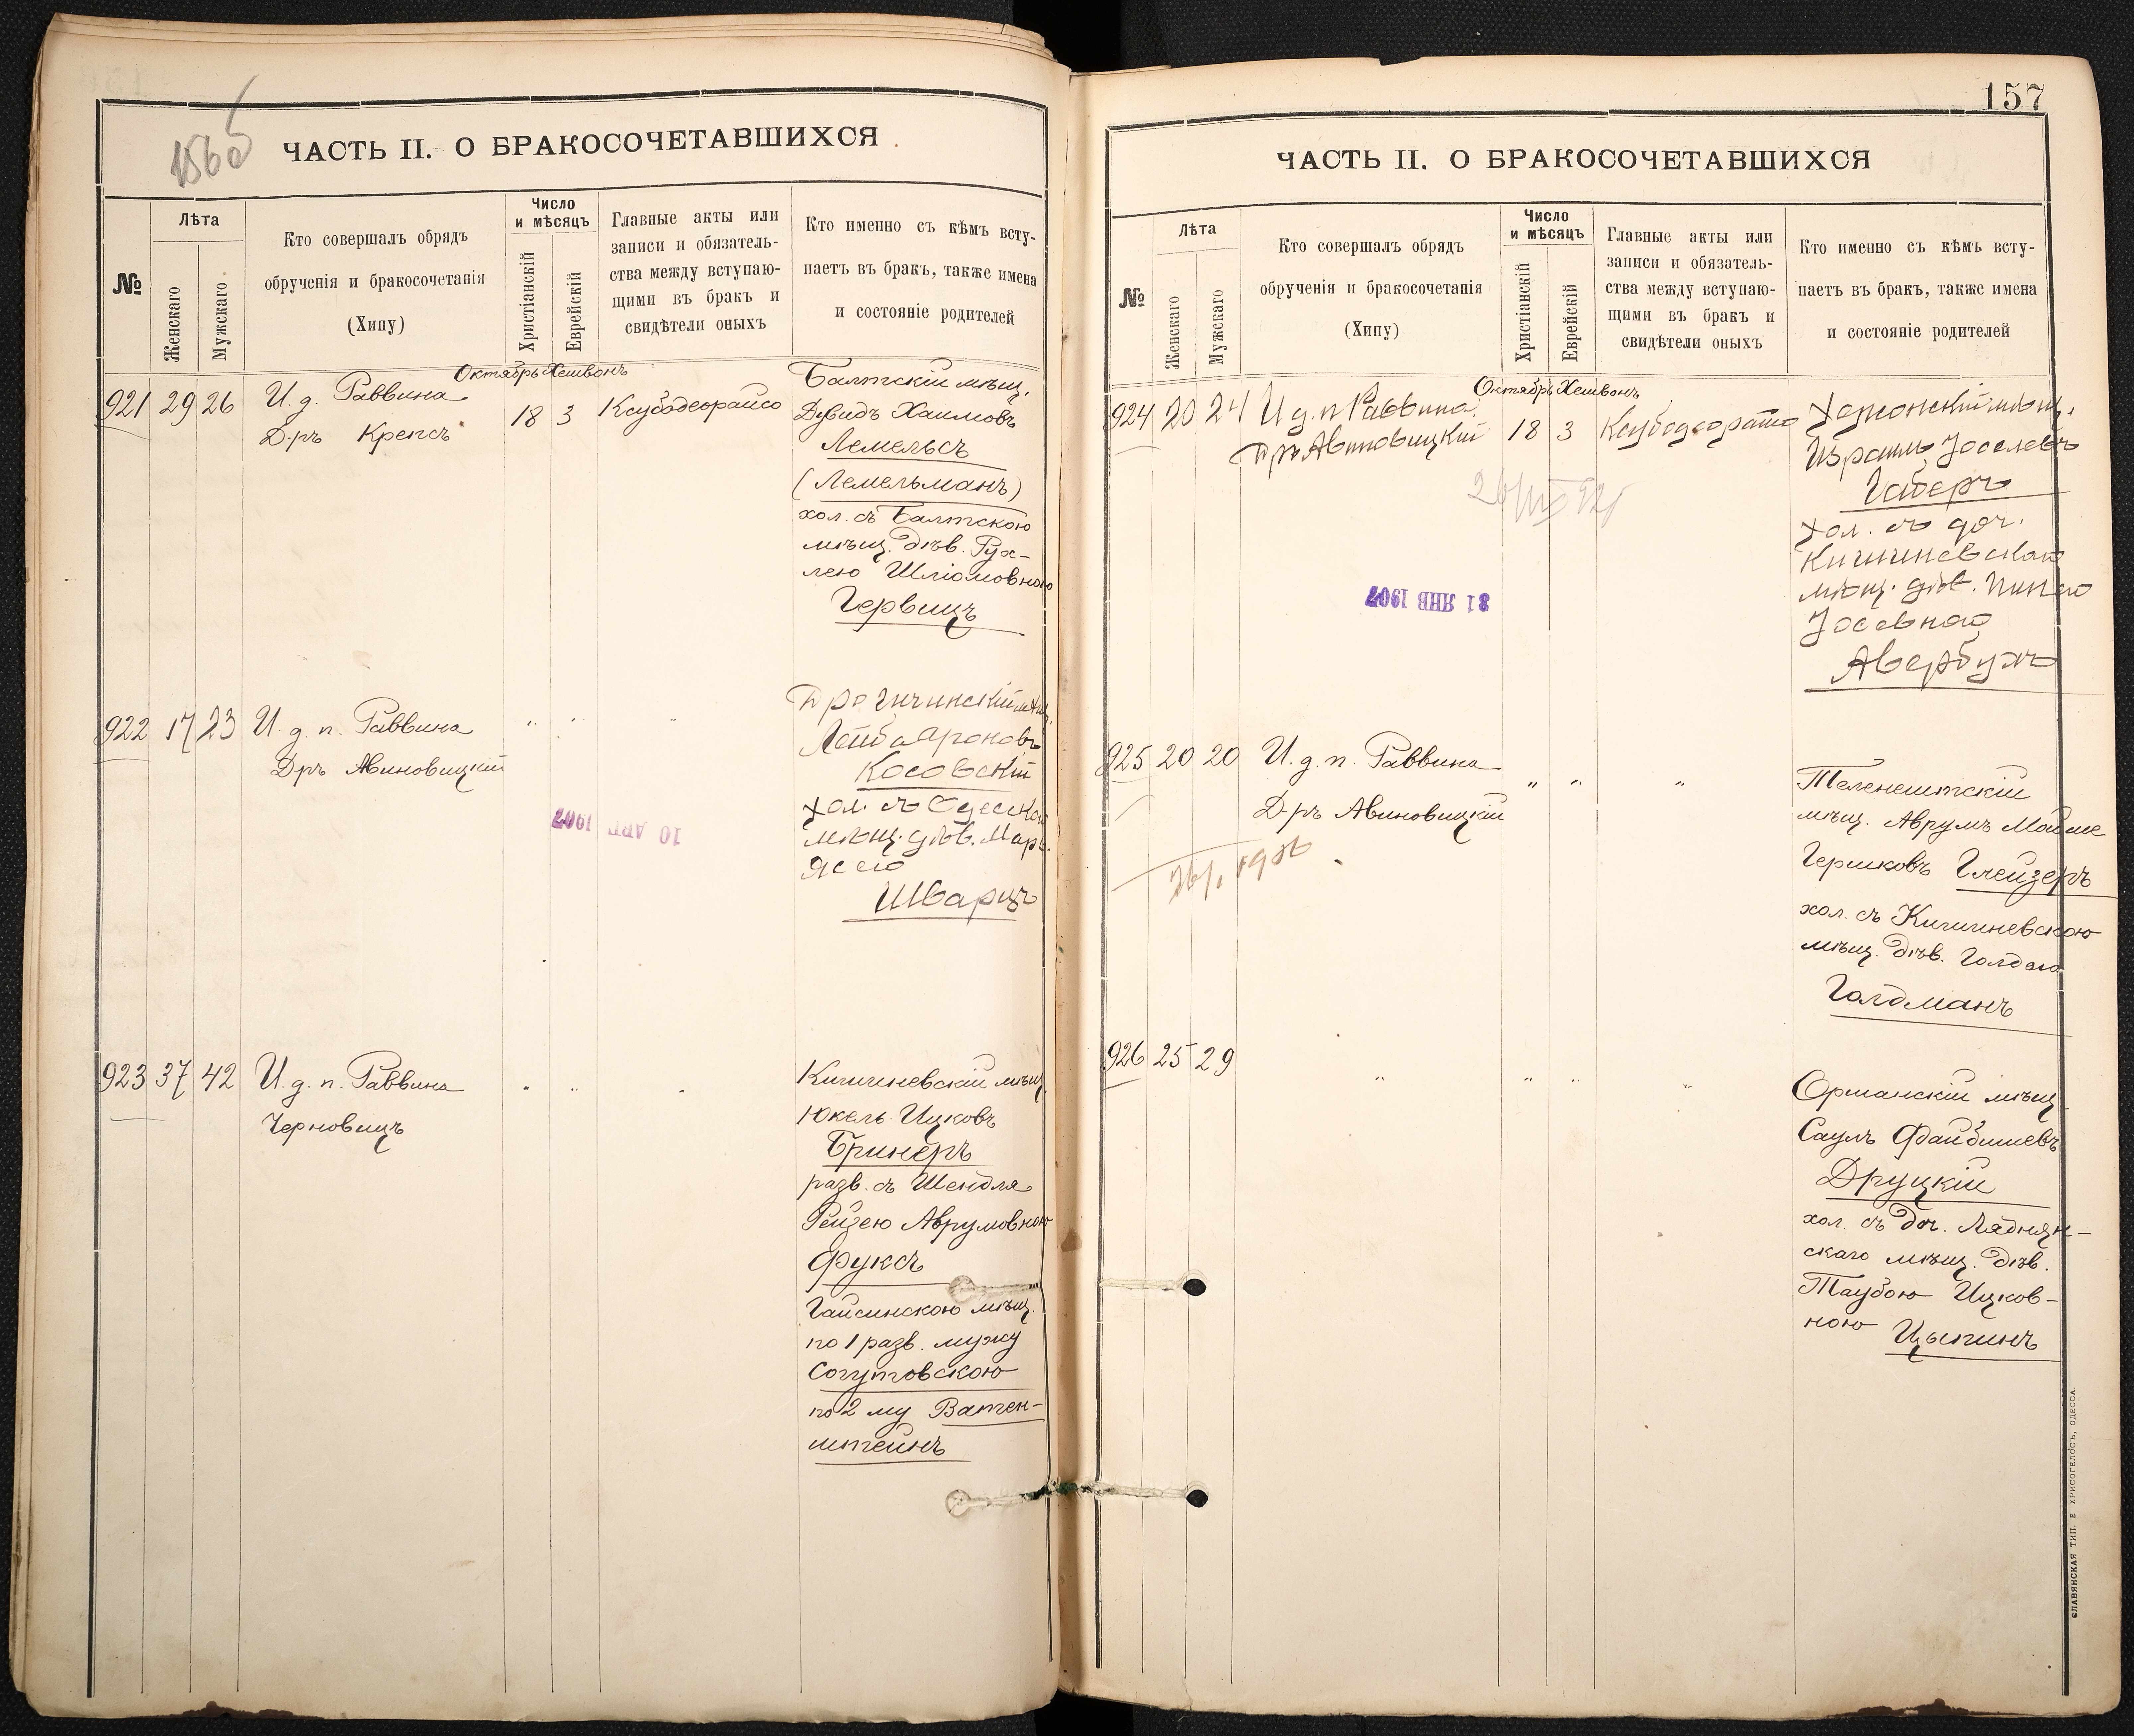 156б
ЧАСТЬ II. О БРАКОСОЧЕТАВШИХСЯ
№
Лѣта
Женскаго
Мужскаго
Кто совершалъ обрядъ
обрученія и бракосочетанія
(Хипу)
Число
и мѣсяцъ
Христіанскій
Еврейскій
Главные акты или
записи и обязатель-
ства между вступаю-
щими въ бракъ и
свидѣтели оныхъ
Кто именно съ кѣмъ всту-
паетъ въ бракъ, также имена
и состояніе родителей
Октябрь Хешвонъ
921 29 26 И. д. Раввина
Д-ръ Крепсъ
18 3 Ксубодеорайсо
Балтскій мѣщ.
Дувидъ Хаимовъ
Лемельсъ
(Лемельманъ)
хол. съ Балтскою
мѣщ. дѣв. Рух-
лею Шліомовною
Гервицъ
922 17 23 И. д. п. Раввина
Д-ръ Авиновицкій
" " "
Лейба Ароновъ
Косовскій
хол. съ Одесской
мѣщ. дѣв. Марь.
Ясею
Шварцъ
10 АПР 1907
923 37 42 И. д. п. Раввина
Черновицъ
" " "
Кишиневскій мѣщ.
Юкель Ицковъ
Бринеръ
разв. съ Шендля
Рейзею Аврумовною
Фуксъ
Гайсинскою мѣщ.
по 1 разв. мужу
Согутовскою
по 2 му Ватен-
штейнъ
157
ЧАСТЬ II. О БРАКОСОЧЕТАВШИХСЯ
№
Лѣта
Женскаго
Мужскаго
Кто совершалъ обрядъ
обрученія и бракосочетанія
(Хипу)
Число
и мѣсяцъ
Христіанскій
Еврейскій
Главные акты или
записи и обязатель-
ства между вступаю-
щими въ бракъ и
свидѣтели оныхъ
Кто именно съ кѣмъ всту-
паетъ въ бракъ, также имена
и состояніе родителей
Октябрь Хешвонъ
924 20 24 И. д. п. Раввина
Д-ръ Авиновицкій
18 3
Херсонскій мѣщ.
Израиль Іоселевъ
Габеръ
хол. съ доч.
Кишиневскаго
мѣщ. дѣв.
Іосевною
Авербухъ
31 ЯНВ 1907
925 20 20 И. д. п. Раввина
Д-ръ Авиновицкій
" " "
Теленештскій
мѣщ. Аврумъ Мойше
Гершковъ Глейзеръ
хол. съ Кишиневскою
мѣщ. дѣв. Голдою
Голдманъ
926 25 29
" " " "
Оршанскій мѣщ.
Саулъ Файбишевъ
Друцкій
хол. съ доч. Ляднян-
скаго мѣщ. дѣв.
Таубою Ицков-
ною Цыпинъ
СЛАВЯНСКАЯ ТИП. Е. ХРИСОГЕЛОСЪ, ОДЕССА.